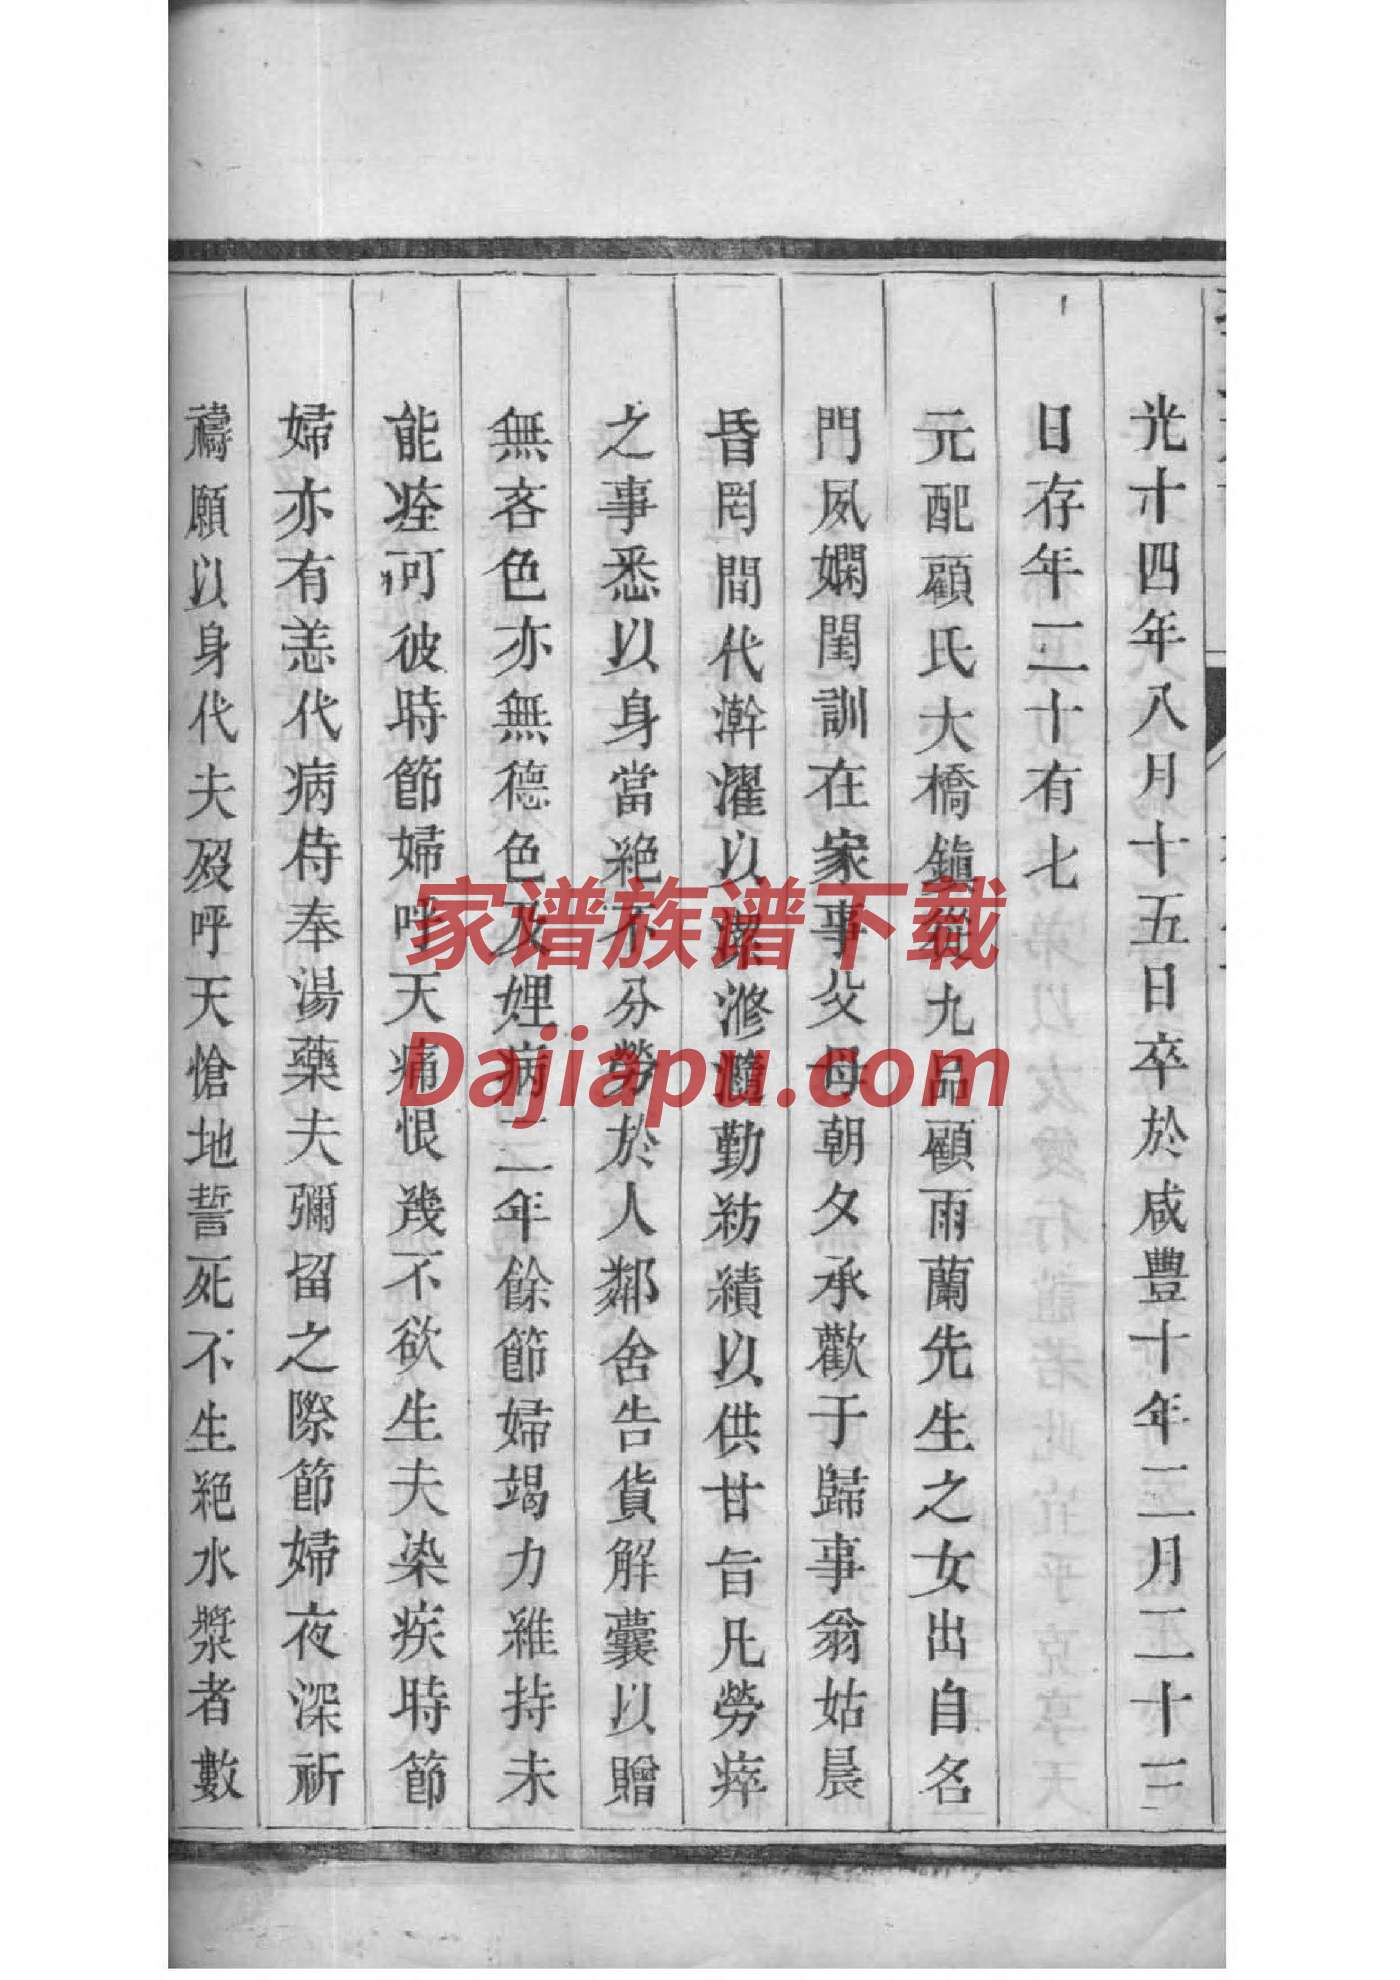 光十四年八月十五日卒於咸豐十年二月二十三
日存年二十有七
元配顧氏大橋鎮從九品顧雨蘭先生之女出自名
門夙嫻閨訓在家事父母朝夕承歡于歸事翁姑晨
昏罔間代澣濯以潔滫瀡勤紡績以供甘旨凡勞瘁
之事悉以身當絶不分勞於人鄰舍告貨解囊以贈
無吝色亦無德色及娌病二年餘節婦竭力維持未
能痊可彼時節婦呼天痛恨幾不欲生夫染疾時節
婦亦有恙代病侍奉湯藥夫彌留之際節婦夜深祈
禱願以身代夫歿呼天愴地誓死不生絶水漿者數
家谱族谱下载
Dajiapu.com